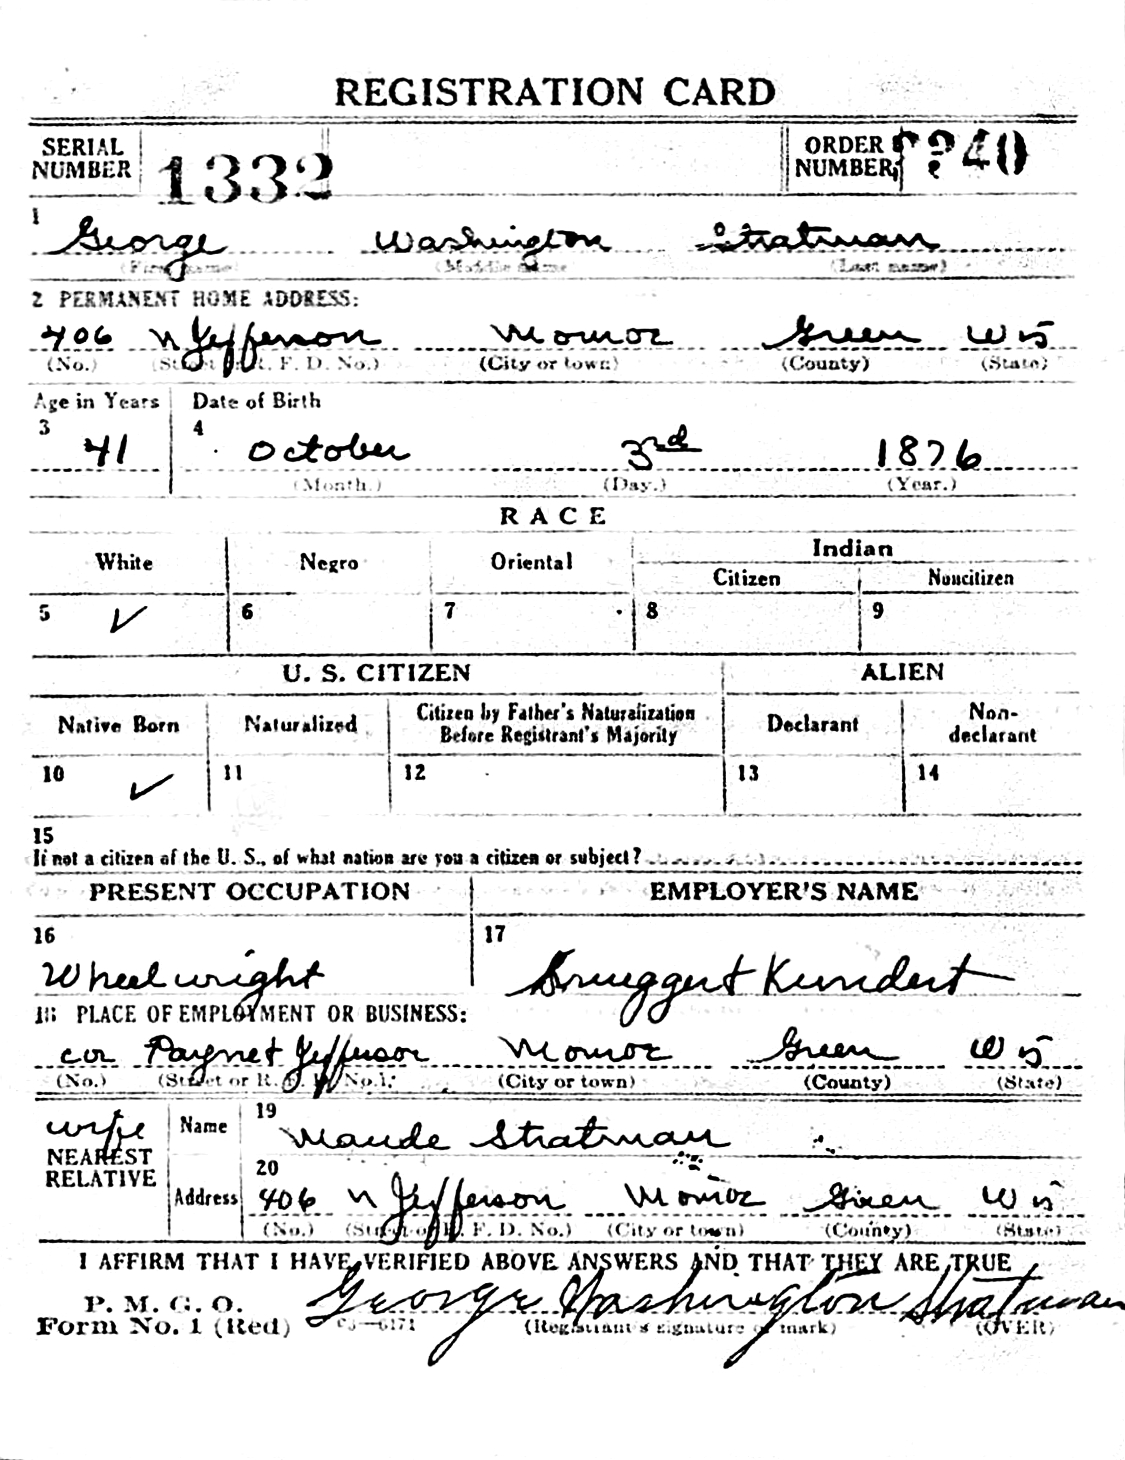 REGISTRATION CARD
SERIAL NUMBER 1332 ORDER NUMBER 240
1 George Washington Stratman
(First name) (Middle name (Last name)
2 PERMANENT HOME ADDRESS:
406 N Jefferson Monroe Green Wis
(No.) (Street or R. F. D. No.) (City or town) (County) (State)
Age in Years Date of Birth
3 41 4 October 3rd 1876
(Month.) (Day.) (Year.)
RACE
White Negro Oriental Indian
Citizen Noncitizen
5 ✓ 6 7 8 9
U. S. CITIZEN ALIEN
Native Born Naturalized Citizen by Father's Naturalization Before Registrant's Majority Declarant Non-declarant
10 ✓ 11 12 13 14
15
If not a citizen of the U. S., of what nation are you a citizen or subject?
PRESENT OCCUPATION EMPLOYER'S NAME
16 17
Wheelwright Kundert
18 PLACE OF EMPLOYMENT OR BUSINESS:
cor Payne & Jefferson Monroe Green Wis
(No.) (Street or R. F. D. No.) (City or town) (County) (State)
wife
NEAREST RELATIVE
Name 19 Maude Stratman
20
Address 406 N Jefferson Monroe Green Wis
(No.) (Street or R. F. D. No.) (City or town) (County) (State)
I AFFIRM THAT I HAVE VERIFIED ABOVE ANSWERS AND THAT THEY ARE TRUE
P. M. G. O.
Form No. 1 (Red) George Washington Stratman
(Registrant's signature or mark) (OVER)